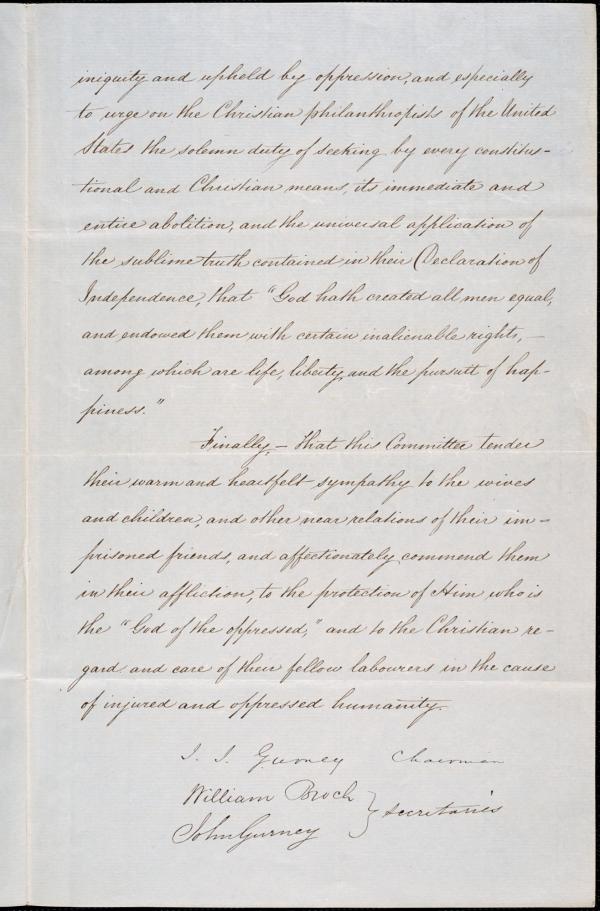 iniquity and upheld by oppression, and especially
to urge on the Christian philanthropists of the United
States the solemn duty of seeking by every constitu-
tional and Christian means, its immediate and
entire abolition, and the universal application of
the sublime truth contained in their Declaration of
Independence, that "God hath created all men equal,
and endowed them with certain inalienable rights, —
among which are life, liberty, and the pursuit of hap-
piness."
Finally, — that this Committee tender
their warm and heartfelt sympathy to the wives
and children, and other near relations of their im-
prisoned friends, and affectionately commend them
in their affliction, to the protection of Him who is
the "God of the oppressed," and to the Christian re-
gard and care of their fellow labourers in the cause
of injured and oppressed humanity.
J. J. Gurney Chairman
William Brock
John Gurney } Secretaries